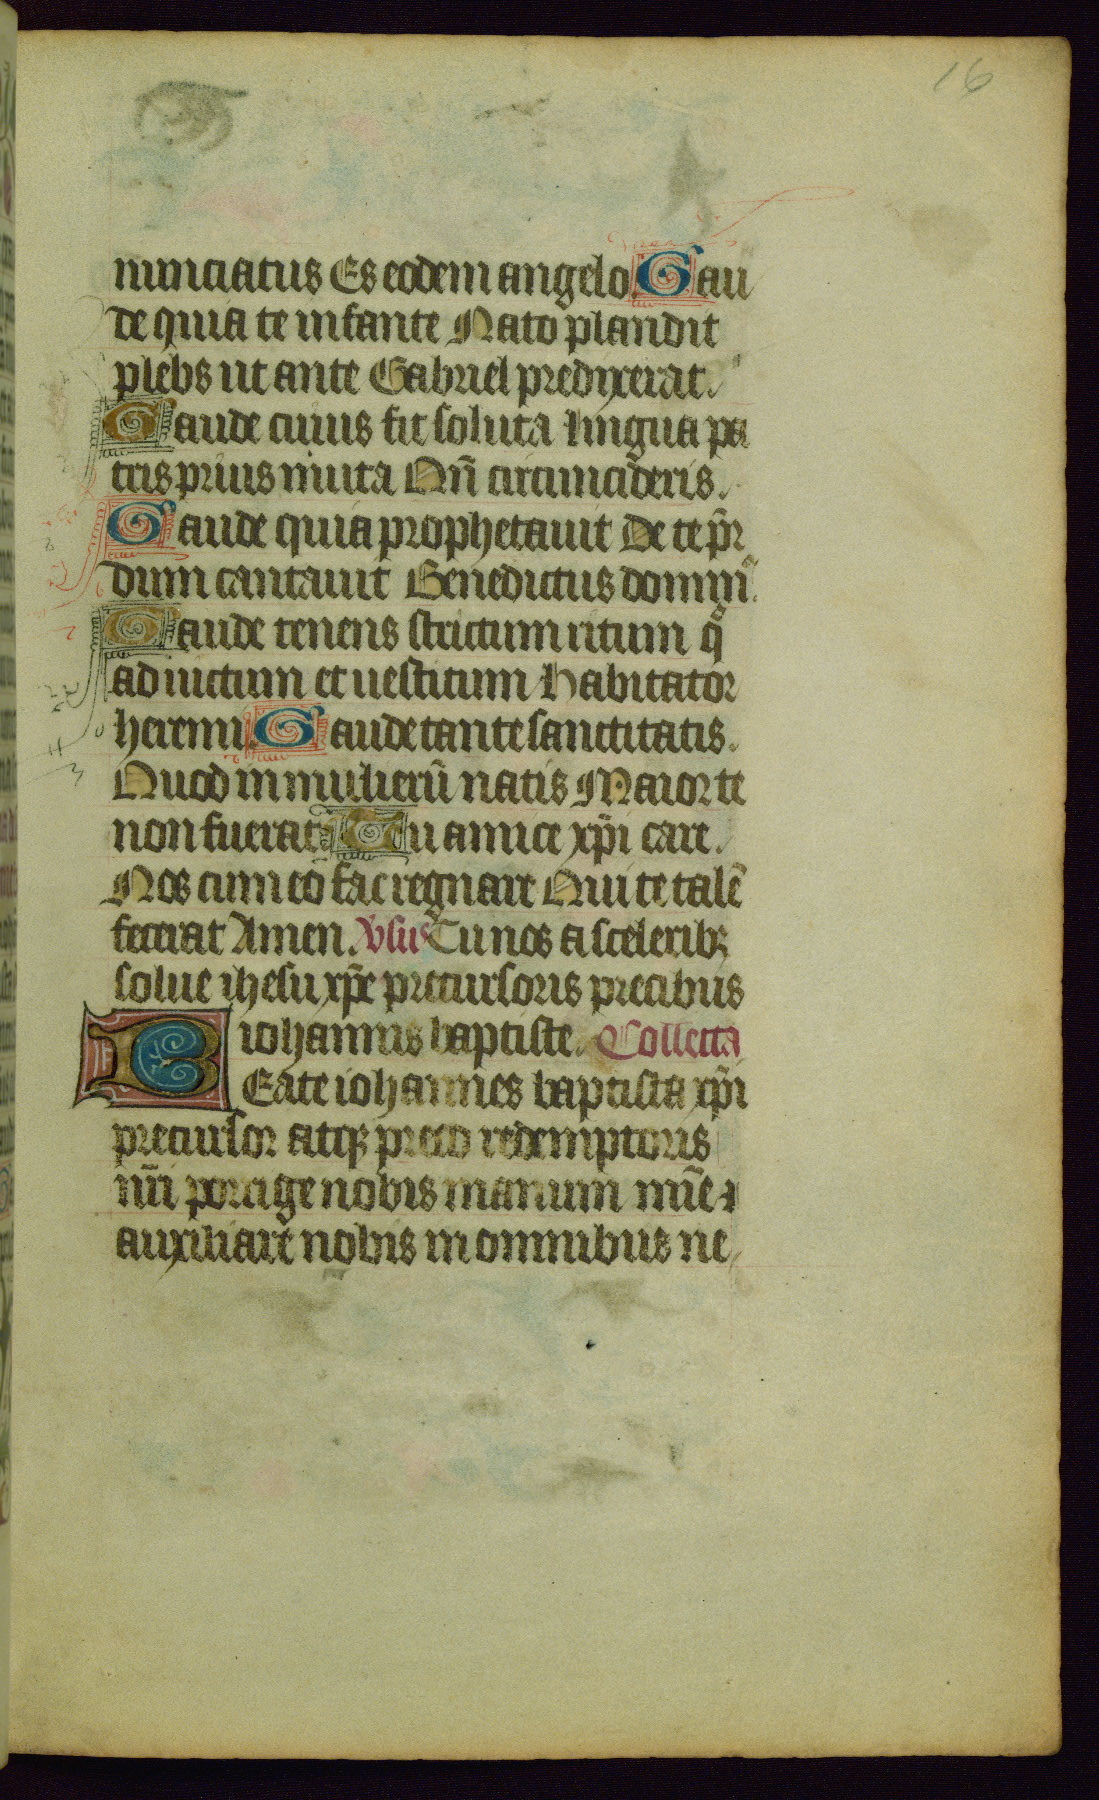 16
nunciatus Es eodem angelo. Gau
de quia te infante Nato plaudit
plebs ut ante Gabriel predixerat.
Gaude cuius fit soluta lingua pa
tris prius muta Qn̄ circumcideris.
Gaude quia prophetauit De te pr̄
dum cantauit Benedictus domin̄.
Gaude tenens strictum ritum q̄
ad uictum et uestitum Habitator
heremi. Gaude tante sanctitatis.
Quod in mulierū natis Maior te
non fuerat. Tu amice xp̄i care.
Nos cum eo fac regnare Qui te talē
fecerat Amen. Vsus Tu nos a sceleribꝫ
solue ihesu xp̄e precursoris precibus
iohannis baptiste. Collecta
BEate iohannes baptista xp̄i
precursor atqꝫ preco redemptoris
nr̄i porrige nobis manum mīe ⁊
auxiliare nobis in omnibus ne